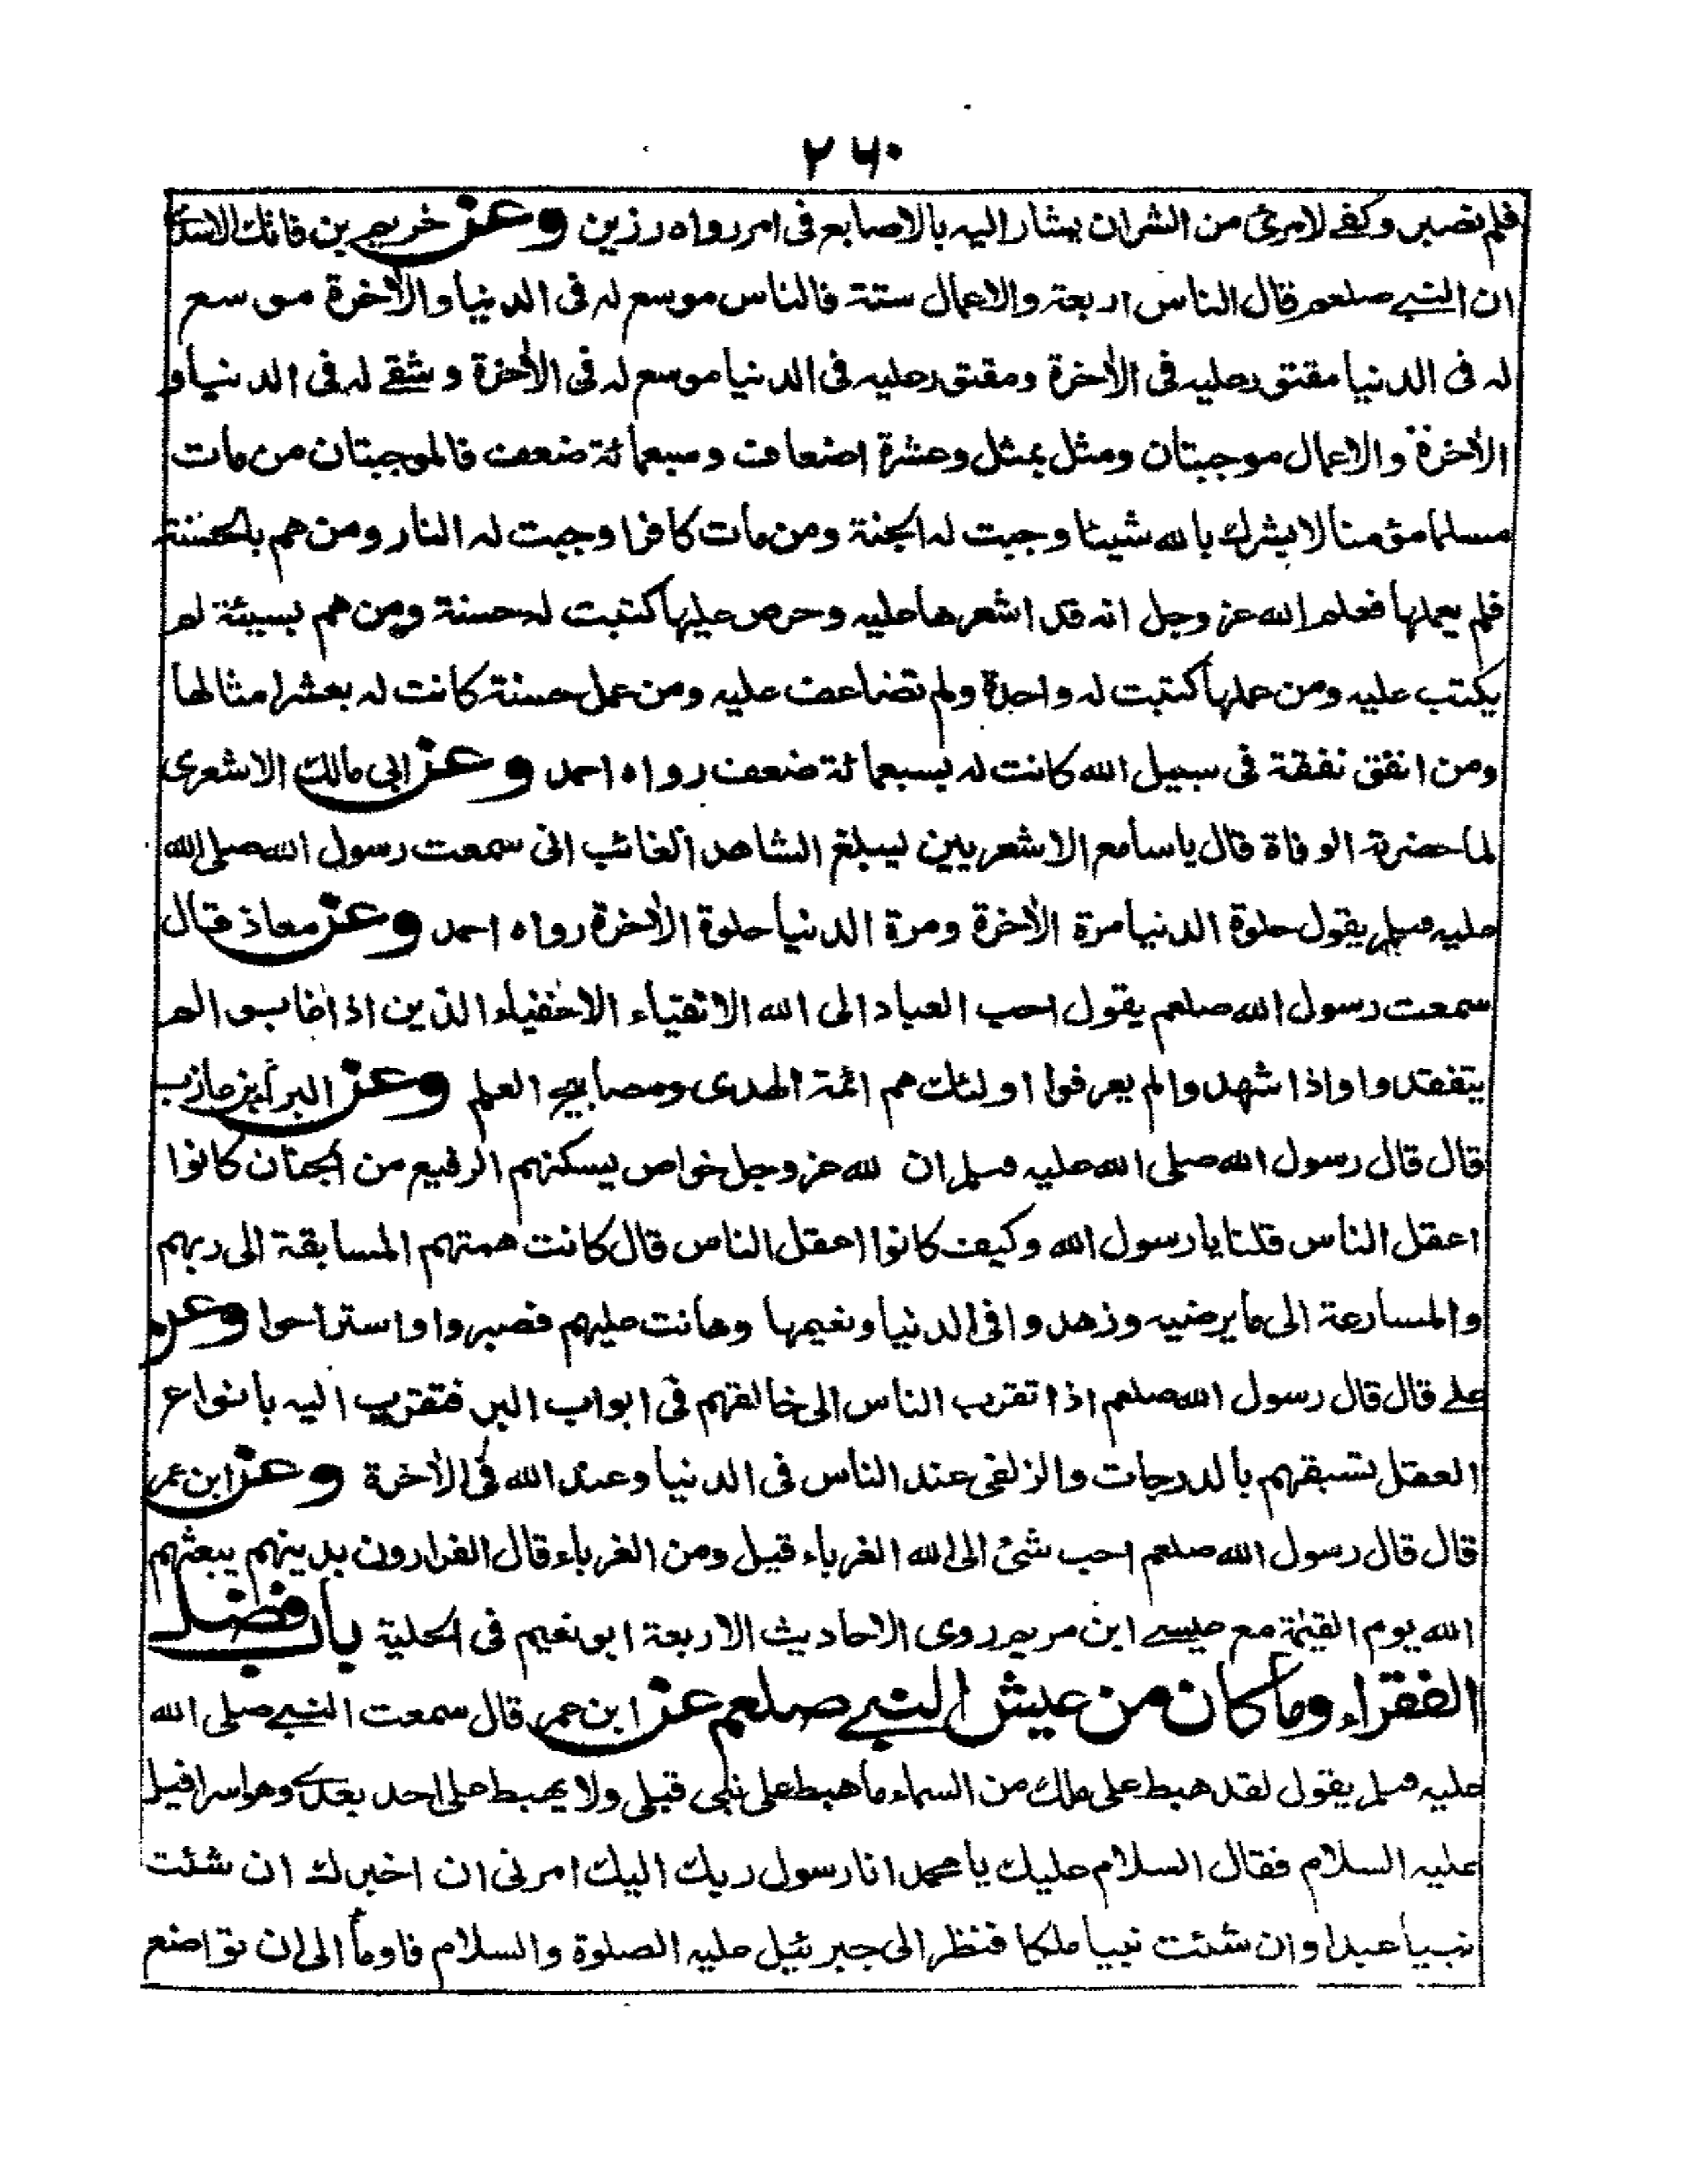 ۲۶۰
فلم نصبر وكفے لامرئ من الشران يشار اليه بالاصابع فى امر رواه رزين وعن خريم بن فاتك الاسدى
ان النبے صلعم قال الناس اربعة والاعمال ستة فالناس موسع له فى الدنيا والأخرة موسع
له فى الدنيا مقتور عليه فى الأخرة ومقتور عليه فى الدنيا موسع له فى الأخرة وشقے له فى الدنيا و
الأخرة والاعمال موجبتان ومثل بمثل وعشرة اضعاف وسبعمائة ضعف فالموجبتان من مات
مسلما مؤمنا لا يشرك بالله شيئا وجبت له الجنة ومن مات كافرا وجبت له النار ومن هم بالحسنة
فلم يعملها فعلم الله عز وجل انه قد اشعرها عليه وحرص عليها كتبت له حسنة ومن هم بسيئة لم
يكتب عليه ومن عملها كتبت له واحدة ولم تضاعف عليه ومن عمل حسنة كانت له بعشر امثالها
ومن انفق نفقة فى سبيل الله كانت له بسبعمائة ضعف رواه احمد وعن ابى مالك الاشعرى
لما حضرته الوفاة قال ياسامع الاشعريين ليبلغ الشاهد الغائب انى سمعت رسول الله صلى الله
عليه وسلم يقول حلوة الدنيا مرة الأخرة ومرة الدنيا حلوة الأخرة رواه احمد وعن معاذ قال
سمعت رسول الله صلعم يقول احب العباد الى الله الاتقياء الاخفياء الذين اذا غابوا لم
يتفقدوا واذا شهدوا لم يعرفوا اولئك هم ائمة الهدى ومصابيح العلم وعن البراء بن عازب
قال قال رسول الله صلى الله عليه وسلم ان لله عز وجل خواص يسكنهم الرفيع من الجنان كانوا
اعقل الناس قلنا يا رسول الله وكيف كانوا اعقل الناس قال كانت همتهم المسابقة الى ربهم
والمسارعة الى ما يرضيه وزهدوا فى الدنيا ونعيمها وهانت عليهم فصبروا واستراحوا وعن
علے قال قال رسول الله صلعم اذا تقرب الناس الى خالقهم فى ابواب البر فتقرب اليه بانواع
العقل تسبقهم بالدرجات والزلفى عند الناس فى الدنيا وعند الله فى الأخرة وعن ابن عمر
قال قال رسول الله صلعم احب شئ الى الله الغرباء قيل ومن الغرباء قال الفرارون بدينهم يبعثهم
الله يوم القيمة مع عيسے ابن مريم روى الاحاديث الاربعة ابو نعيم فى الحلية باب فضل
الفقراء وما كان من عيش النبے صلعم عن ابن عمر قال سمعت النبے صلى الله
عليه وسلم يقول لقد هبط على ملك من السماء ما هبط على نبى قبلى ولا يهبط على احد بعدے وهو اسرافيل
عليه السلام فقال السلام عليك يا محمد انا رسول ربك اليك امرنى ان اخبرك ان شئت
نبيا عبدا وان شئت نبيا ملكا فنظر الى جبرئيل عليه الصلوة والسلام فاومأ الى ان تواضع